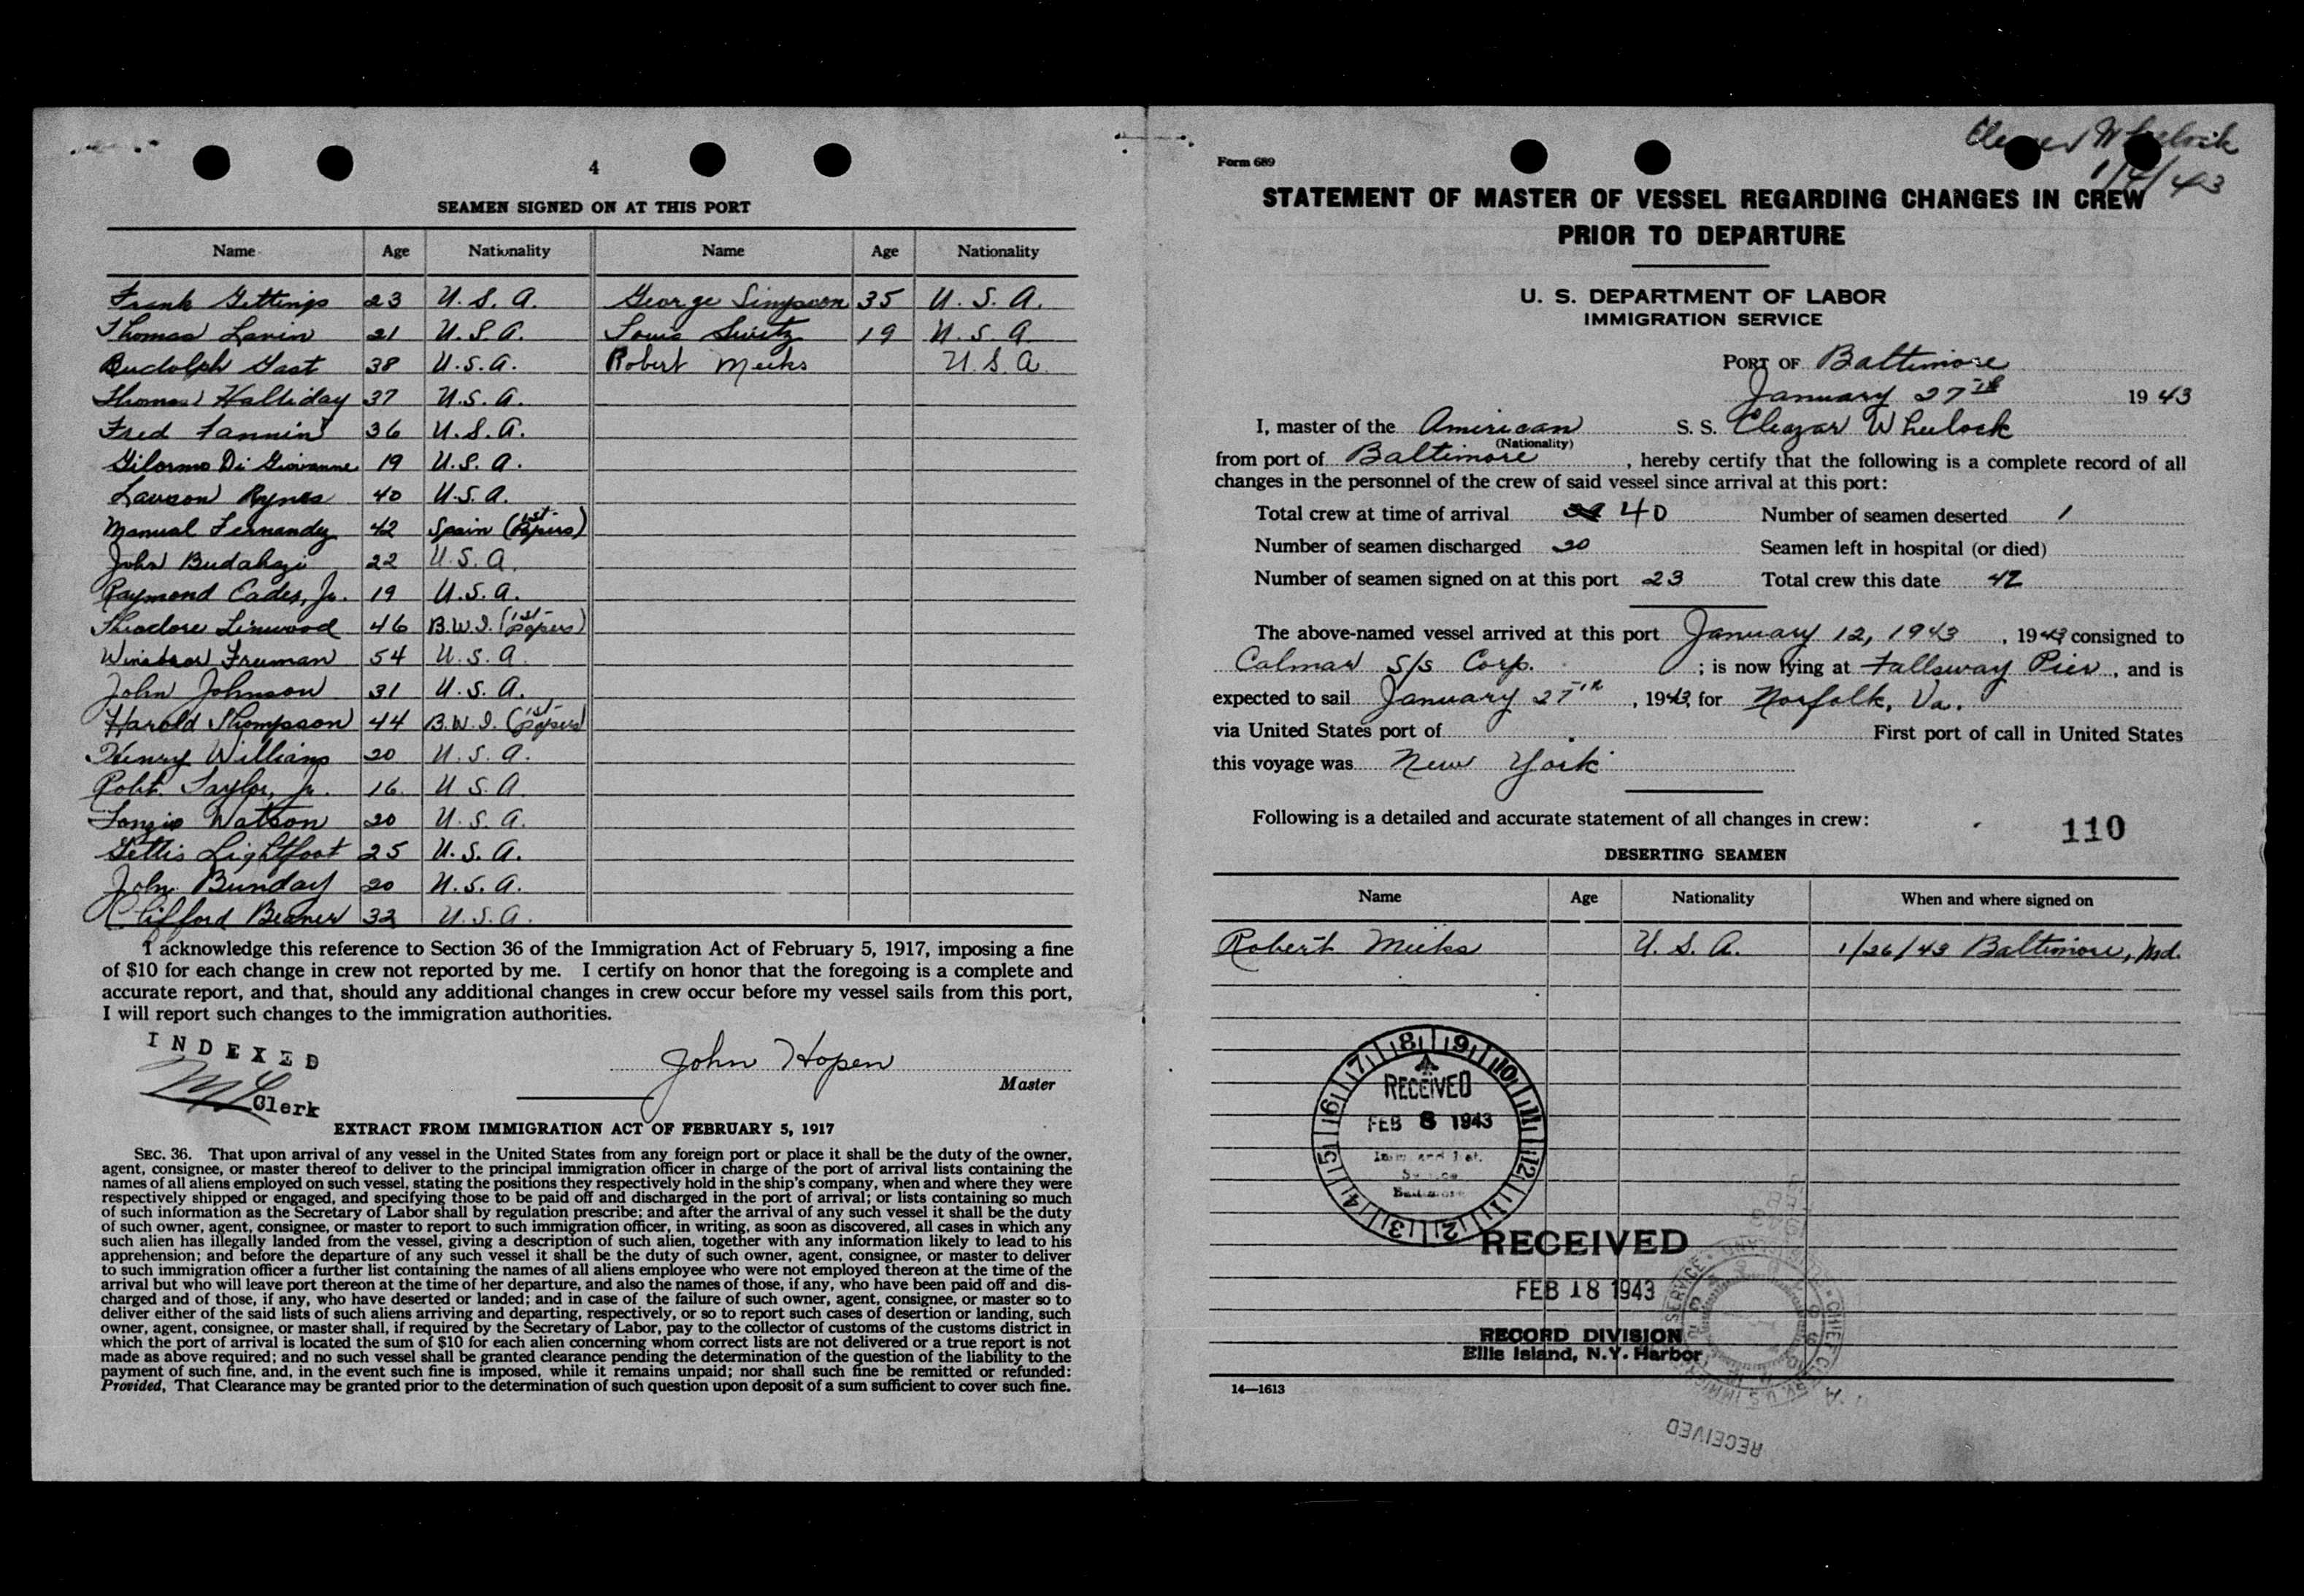 4
SEAMEN SIGNED ON AT THIS PORT
Name Age Nationality Name Age Nationality
Frank Gettings 23 U. S. A. George Simpson 35 U. S. A.
Thomas Lavin 21 U. S. A. Louis 19 U. S. A.
Rudolph Gast 38 U.S.A. Robert Meeks U.S.A.
Thomas Halliday 37 U.S.A.
Fred Fannin 36 U.S.A.
Di Giovanne 19 U.S.A.
Lawson Rynes 40 U.S.A.
Manual Fernandez 42 Spain (1st papers)
John Budahazi 22 U.S.A.
Raymond Eades, Jr. 19 U.S.A.
Theodore Linwood 46 B.W.I. (1st papers)
Freeman 54 U.S.A.
John Johnson 31 U.S.A.
Harold Thompson 44 B.W.I. (1st papers)
Henry Williams 20 U.S.A.
Robt. Taylor, Jr. 16 U.S.A.
Watson 20 U.S.A.
Gettis Lightfoot 25 U.S.A.
John Bunday 20 U.S.A.
Clifford 32 U.S.A.
I acknowledge this reference to Section 36 of the Immigration Act of February 5, 1917, imposing a fine
of $10 for each change in crew not reported by me. I certify on honor that the foregoing is a complete and
accurate report, and that, should any additional changes in crew occur before my vessel sails from this port,
I will report such changes to the immigration authorities.
INDEXED
Clerk
John Hopen
Master
EXTRACT FROM IMMIGRATION ACT OF FEBRUARY 5, 1917
SEC. 36. That upon arrival of any vessel in the United States from any foreign port or place it shall be the duty of the owner,
agent, consignee, or master thereof to deliver to the principal immigration officer in charge of the port of arrival lists containing the
names of all aliens employed on such vessel, stating the positions they respectively hold in the ship's company, when and where they were
respectively shipped or engaged, and specifying those to be paid off and discharged in the port of arrival; or lists containing so much
of such information as the Secretary of Labor shall by regulation prescribe; and after the arrival of any such vessel it shall be the duty
of such owner, agent, consignee, or master to report to such immigration officer, in writing, as soon as discovered, all cases in which any
such alien has illegally landed from the vessel, giving a description of such alien, together with any information likely to lead to his
apprehension; and before the departure of any such vessel it shall be the duty of such owner, agent, consignee, or master to deliver
to such immigration officer a further list containing the names of all aliens employee who were not employed thereon at the time of the
arrival but who will leave port thereon at the time of her departure, and also the names of those, if any, who have been paid off and dis-
charged and of those, if any, who have deserted or landed; and in case of the failure of such owner, agent, consignee, or master so to
deliver either of the said lists of such aliens arriving and departing, respectively, or so to report such cases of desertion or landing, such
owner, agent, consignee, or master shall, if required by the Secretary of Labor, pay to the collector of customs of the customs district in
which the port of arrival is located the sum of $10 for each alien concerning whom correct lists are not delivered or a true report is not
made as above required; and no such vessel shall be granted clearance pending the determination of the question of the liability to the
payment of such fine, and, in the event such fine is imposed, while it remains unpaid; nor shall such fine be remitted or refunded:
Provided, That Clearance may be granted prior to the determination of such question upon deposit of a sum sufficient to cover such fine.
Wheelock
1/4/43
Form 689
STATEMENT OF MASTER OF VESSEL REGARDING CHANGES IN CREW
PRIOR TO DEPARTURE
U. S. DEPARTMENT OF LABOR
IMMIGRATION SERVICE
PORT OF Baltimore
January 27th 1943
I, master of the American S. S. Eleazar Wheelock
(Nationality)
from port of Baltimore, hereby certify that the following is a complete record of all
changes in the personnel of the crew of said vessel since arrival at this port:
Total crew at time of arrival 40 Number of seamen deserted 1
Number of seamen discharged 20 Seamen left in hospital (or died)
Number of seamen signed on at this port 23 Total crew this date 42
The above-named vessel arrived at this port January 12, 1943, 1943 consigned to
Calmar S/S Corp. ; is now lying at Fallsway Pier, and is
expected to sail January 27th, 1943, for Norfolk, Va.
via United States port of First port of call in United States
this voyage was New York
Following is a detailed and accurate statement of all changes in crew:
110
DESERTING SEAMEN
Name Age Nationality When and where signed on
Robert Meeks U. S. A. 1/26/43 Baltimore, Md.
7 8 9 10 11 12 1 2 3 4 5 6
RECEIVED
FEB 8 1943
Baltimore
RECEIVED
FEB 18 1943
RECORD DIVISION
Ellis Island, N.Y. Harbor
14—1613
RECEIVED